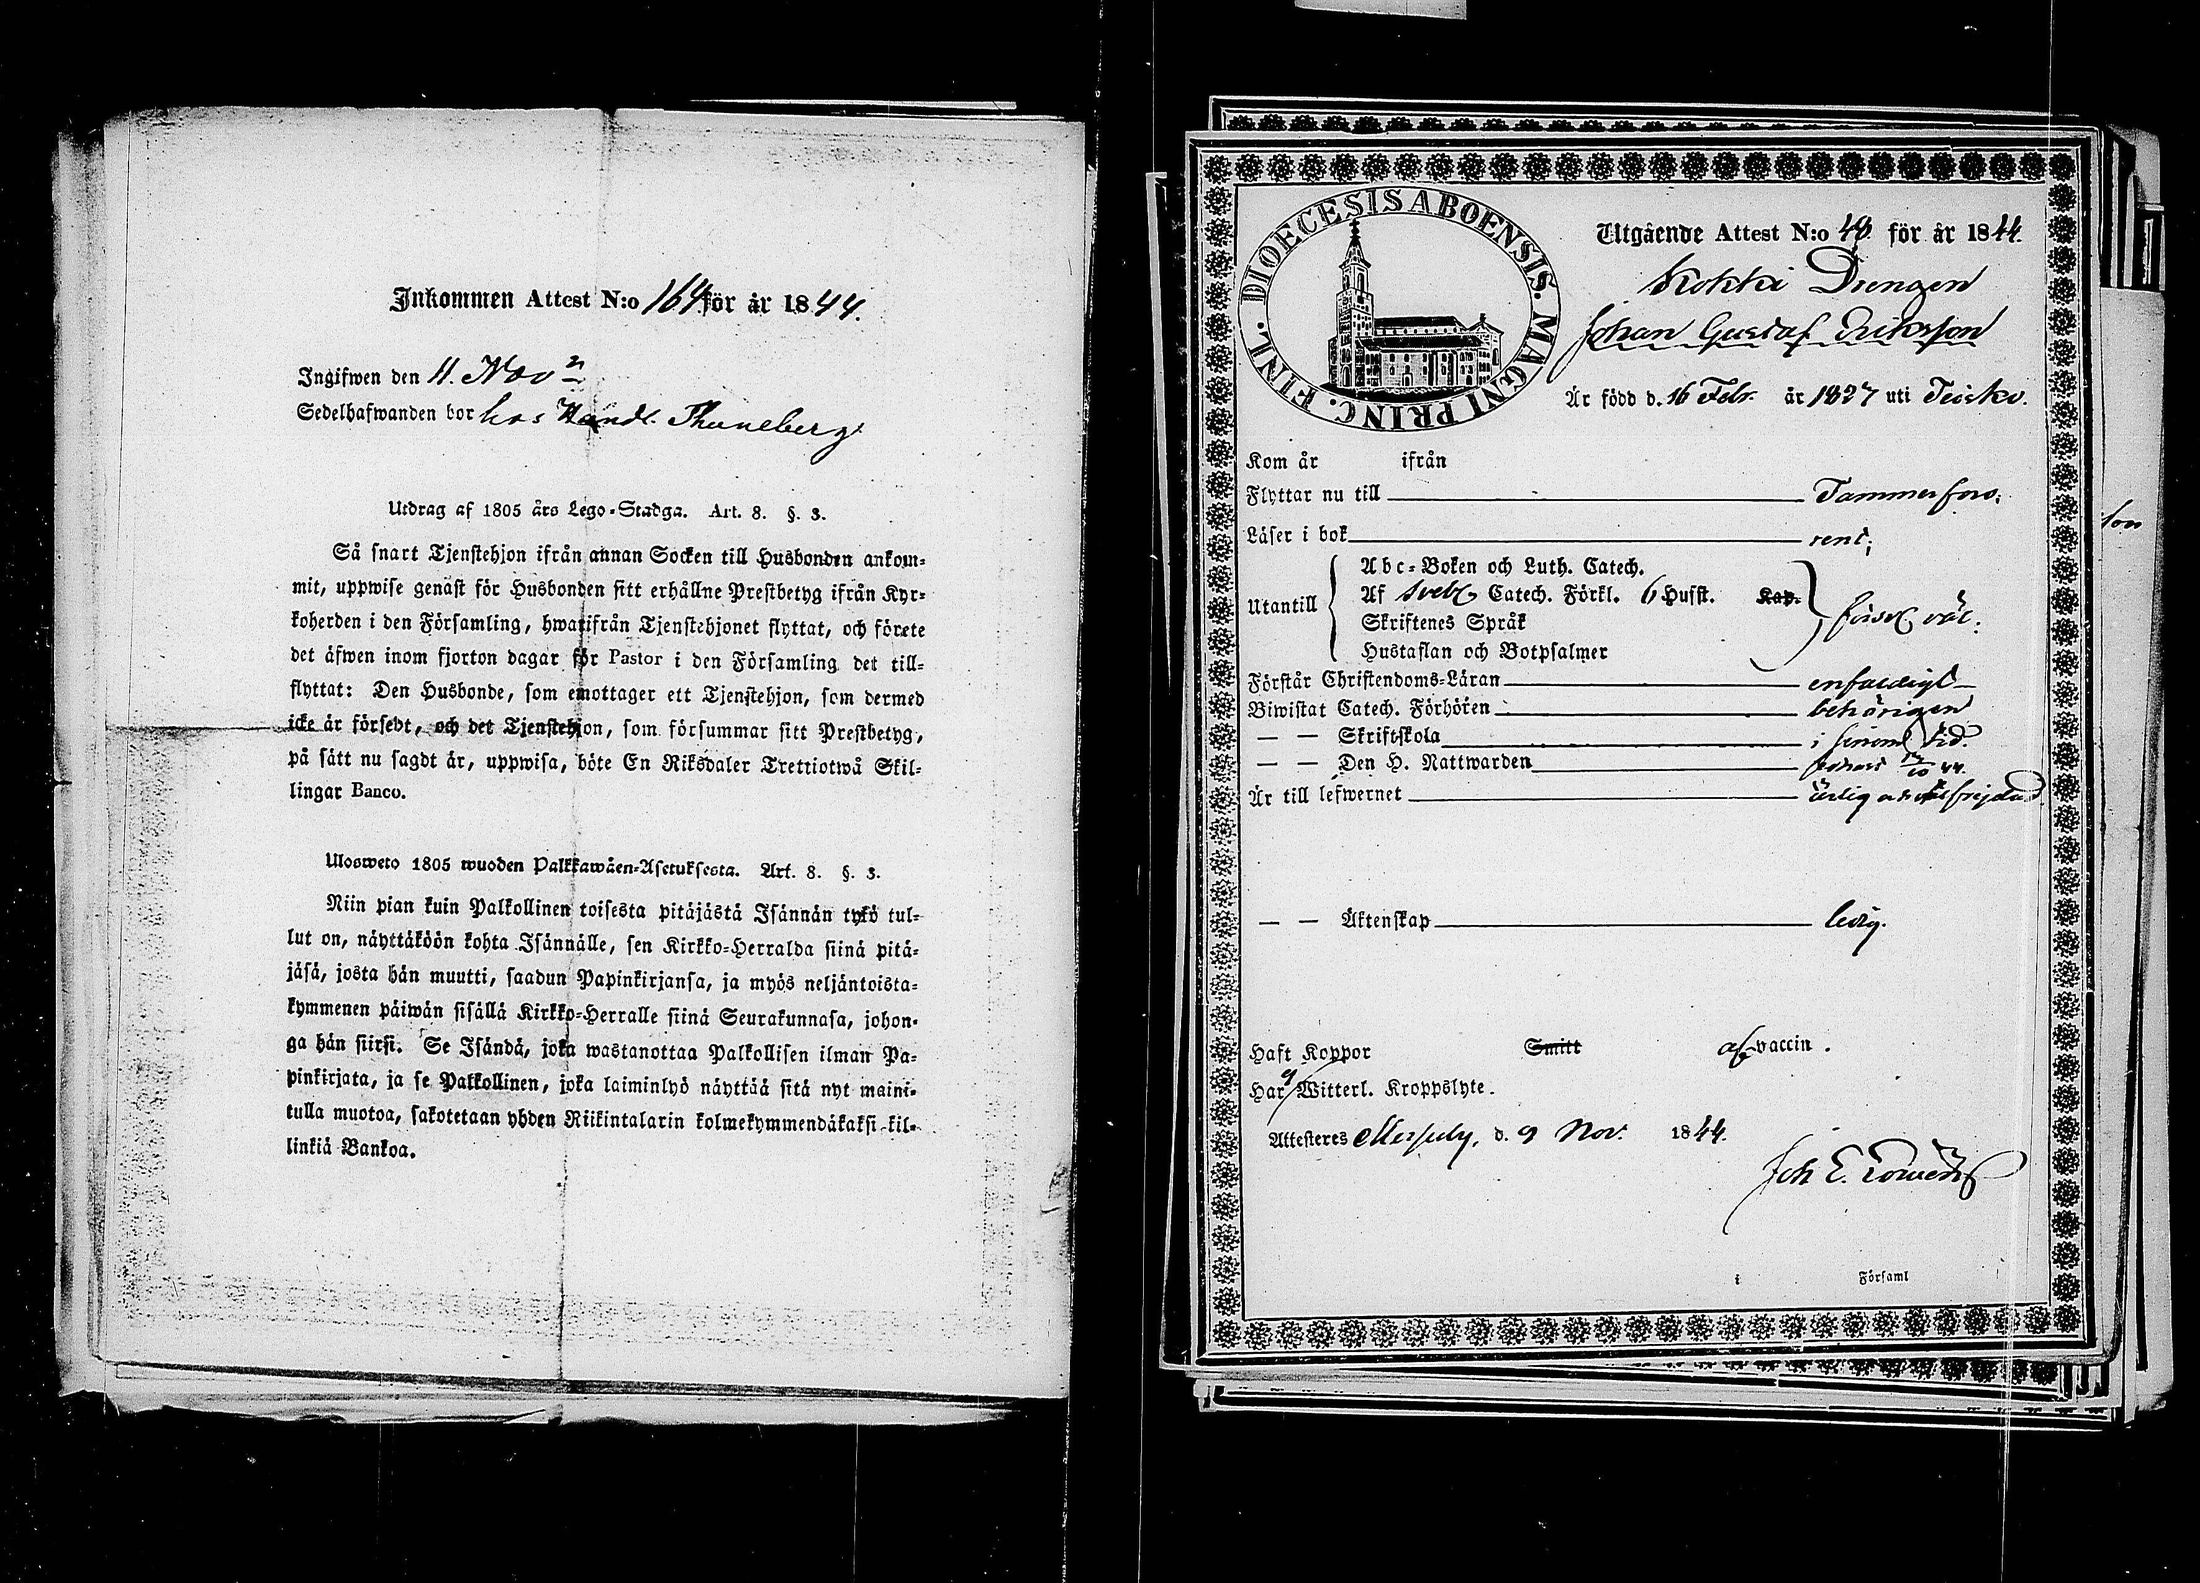 Inkommen Attest N:o 164 för år 1844.
Ingifwen den 11. Nov
Sedelhafwanden bor hos Handl. Thuneberg
Utdrag af 1805 års Lego-Stadga. Art. 8. §. 3.
Så snart Tjenstehjon ifrån annan Socken till Husbonden ankom-
mit, uppwise genast för Husbonden sitt erhållne Prestbetyg ifrån Kyr-
koherden i den Församling, hwarifrån Tjenstehjonet flyttat, och förete
det äfwen inom fjorton dagar för Pastor i den Församling det till-
flyttat: Den Husbonde, som emottager ett Tjenstehjon, som dermed
icke är försedt, och det Tjenstehjon, som försummar sitt Prestbetyg,
på sätt nu sagdt är, uppwisa, böte En Riksdaler Trettiotwå Skil-
lingar Banco.
Ulosweto 1805 wuoden Palkkawäen-Asetuksesta. Art. 8. §. 3.
Niin pian kuin Palkollinen toisesta pitäjästä Isännän tykö tul-
lut on, näyttäköön kohta Isännälle, sen Kirkko-Herralda siinä pitä-
jäsä, josta hän muutti, saadun Papinkirjansa, ja myös neljäntoista-
kymmenen päiwän sisällä Kirkko-Herralle siinä Seurakunnasa, johon-
ga hän siirsi. Se Isändä, joka wastanottaa Palkollisen ilman Pa-
pinkirjata, ja se Palkollinen, joka laiminlyö näyttää sitä nyt maini-
tulla muotoa, sakotetaan yhden Riikintalarin kolmekymmendäkaksi kil-
linkiä Bankoa.
DIOECESIS ABOENSIS. MAGNI PRINC. FINL.
Utgående Attest N:o 48 för år 1844.
Kokki Drengen
Johan Gustaf Eriksson
Är född d. 16 Febr. år 1827 uti Teisko.
Kom år ifrån
Flyttar nu till Tammerfors.
Läser i bok rent;
Utantill
Abc-Boken och Luth. Catech.
Af Sveb. Catech. Förkl. 6 Hufst. Kap.
Skriftenes Språk
Hustaflan och Botpsalmer
försv. väl.
Förstår Christendoms-Läran enfaldigt
Biwistat Catech. Förhören behörigen
— — Skriftskola
— — Den H. Nattwarden 44.
Är till lefwernet ärlig och frejdad
— — Äktenskap ledig.
Haft Koppor Smitt af vaccin.
Har Witterl. Kroppslyte.
Attesteres Messuby, d. 9 Nov. 1844.
Joh E.
i Församl